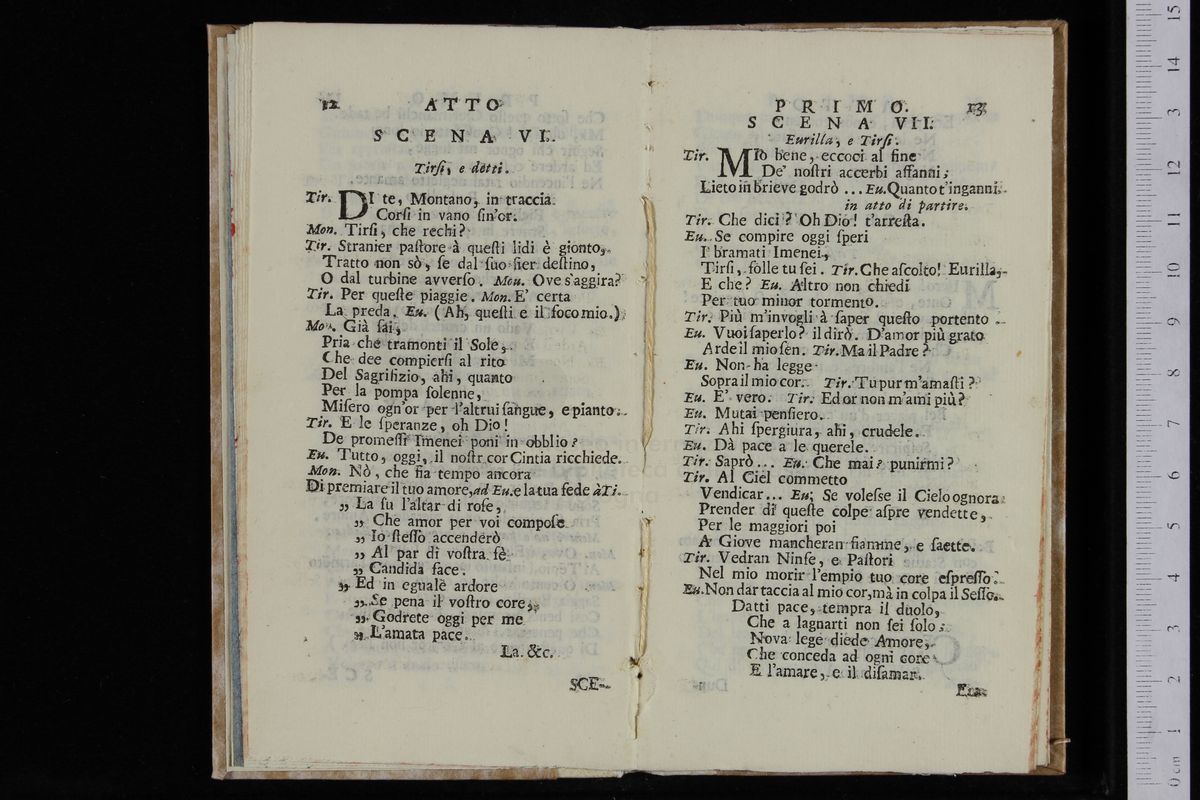 12 ATTO
SCENA VI.
Tirſi, e detti.
Tir. DI te, Montano, in traccia
Corſi in vano ſin'or.
Mon. Tirſi, che rechi?
Tir. Stranier paſtore à queſti lidi è gionto,
Tratto non sò, ſe dal ſuo fier deſtino,
O dal turbine avverſo. Mon. Ove s'aggira?
Tir. Per queſte piaggie. Mon. E' certa
La preda. Eu. (Ah, queſti e il foco mio.)
Mon. Già ſai,
Pria che tramonti il Sole,
Che dee compierſi al rito
Del Sagrifizio, ahi, quanto
Per la pompa ſolenne,
Miſero ogn'or per l'altrui ſangue, e pianto.
Tir. E le ſperanze, oh Dio!
De promeſſi Imenei poni in obblio?
Eu. Tutto, oggi, il noſtr cor Cintia ricchiede.
Mon. Nò, che fia tempo ancora
Di premiare il tuo amore, ad Eu. e la tua fede à Ti.
„ La ſu l'altar di roſe,
„ Che amor per voi compoſe
„ Io ſteſſo accenderò
„ Al par di voſtra fè
„ Candida face.
„ Ed in eguale ardore
„ Se pena il voſtro core,
„ Godrete oggi per me
„ L'amata pace.
La. &c.
SCE-
PRIMO. 13
SCENA VII.
Eurilla, e Tirſi.
Tir. MIo bene, eccoci al fine
De' noſtri accerbi affanni;
Lieto in brieve godrò ... Eu. Quanto t'inganni.
in atto di partire.
Tir. Che dici? Oh Dio! t'arreſta.
Eu. Se compire oggi ſperi
I bramati Imenei,
Tirſi, folle tu ſei. Tir. Che aſcolto! Eurilla,
E che? Eu. Altro non chiedi
Per tuo minor tormento.
Tir. Più m'invogli à ſaper queſto portento.
Eu. Vuoi ſaperlo? il dirò. D'amor più grato
Arde il mio ſen. Tir. Ma il Padre?
Eu. Non ha legge
Sopra il mio cor. Tir. Tu pur m'amaſti?
Eu. E' vero. Tir. Ed or non m'ami più?
Eu. Mutai penſiero.
Tir. Ahi ſpergiura, ahi, crudele.
Eu. Dà pace a le querele.
Tir. Saprò... Eu. Che mai? punirmi?
Tir. Al Ciel commetto
Vendicar... Eu. Se voleſse il Cielo ognora
Prender di queſte colpe aſpre vendette,
Per le maggiori poi
A Giove mancheran fiamme, e ſaette.
Tir. Vedran Ninfe, e Paſtori
Nel mio morir l'empio tuo core eſpreſſo.
Eu. Non dar taccia al mio cor, mà in colpa il Seſſo.
Datti pace, tempra il duolo,
Che a lagnarti non ſei ſolo;
Nova lege diede Amore,
Che conceda ad ogni core
E l'amare, e il diſamar.